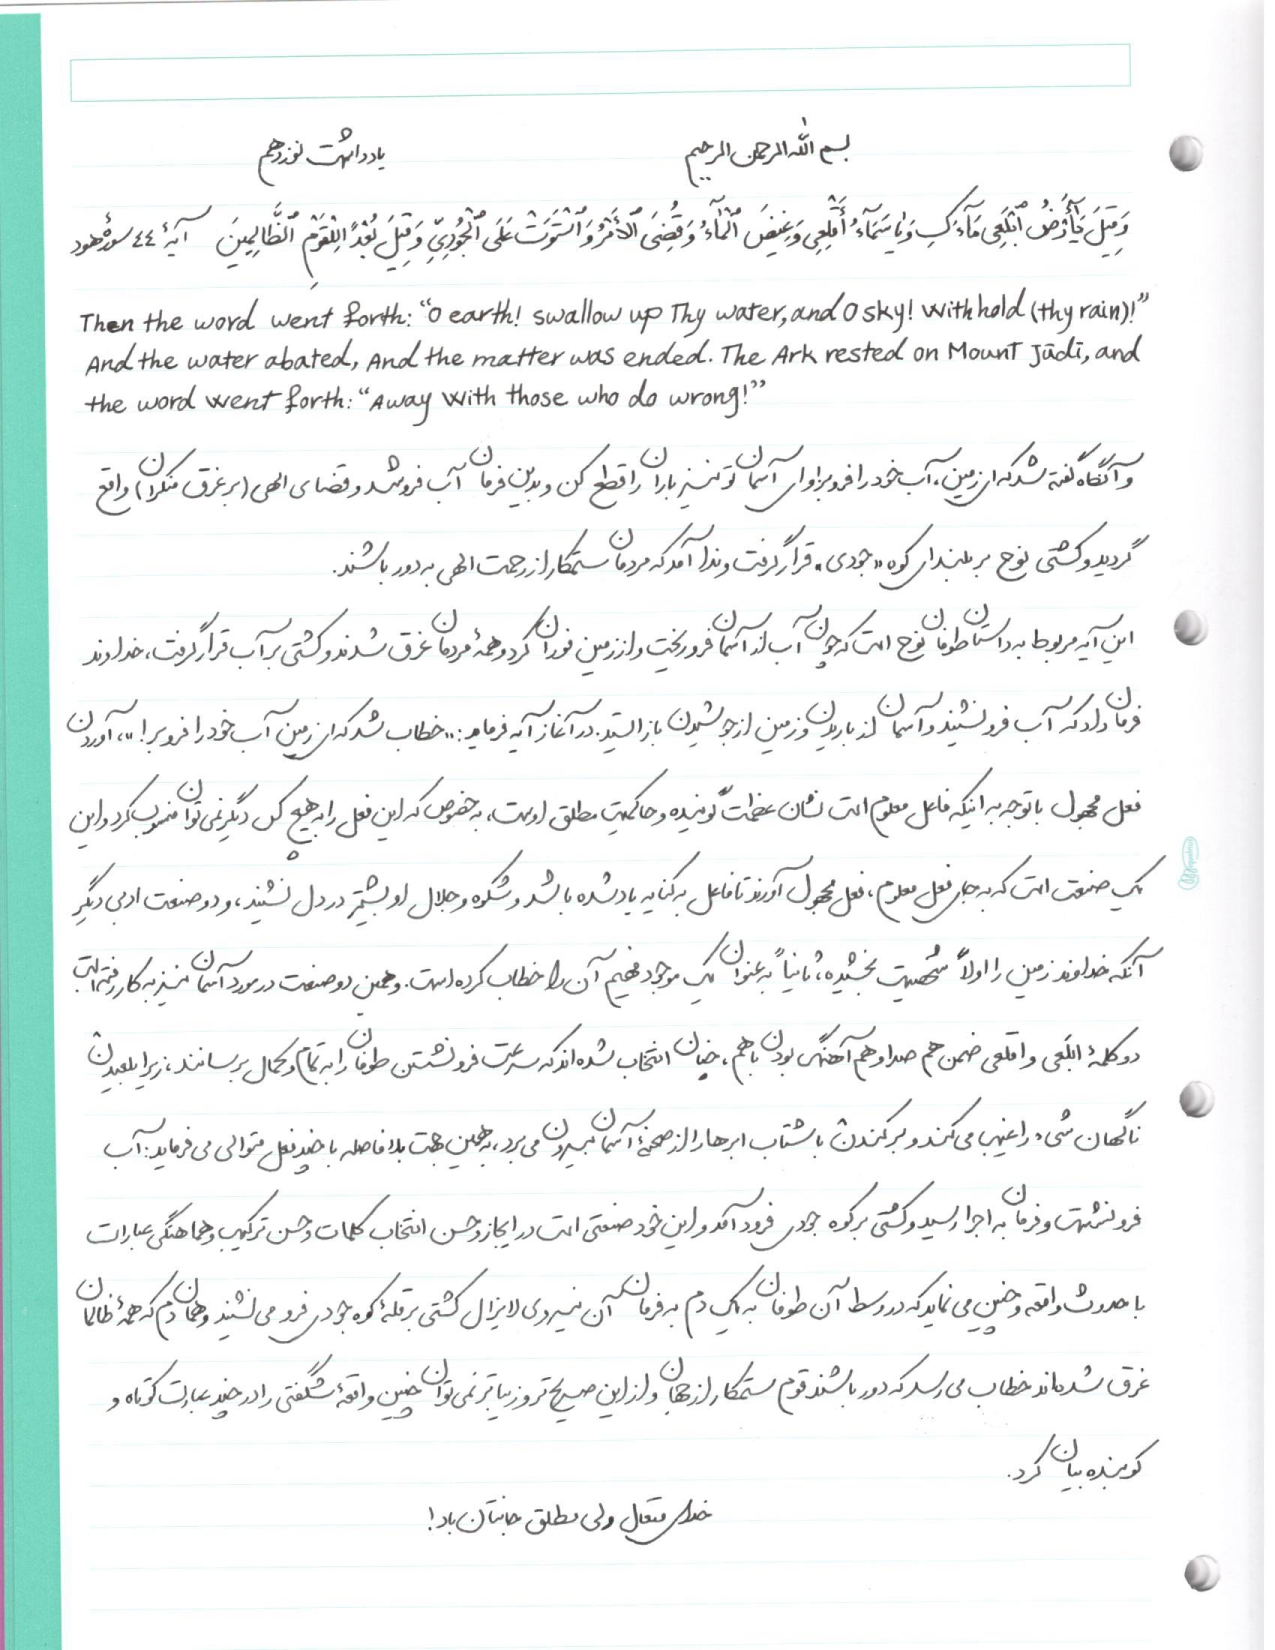 بسم الله الرحمن الرحیم
یادداشت نوزدهم
وَقِيلَ يَٰٓأَرْضُ ٱبْلَعِي مَآءَكِ وَيَاسَمَآءُ أَقْلِعِي وَغِيضَ ٱلْمَآءُ وَقُضِيَ ٱلْأَمْرُ وَٱسْتَوَتْ عَلَى ٱلْجُودِيِّ وَقِيلَ بُعْدًا لِلْقَوْمِ ٱلظَّالِمِينَ آیهٔ ٤٤ سورهٔ هود
Then the word went forth: "O earth! swallow up Thy water, and O sky! withhold (thy rain)!"
And the water abated, And the matter was ended. The Ark rested on Mount Jūdī, and
the word went forth: "Away with those who do wrong!"
و آنگاه گفته شد که ای زمین، آب خود را فرو بر و ای آسمان تو نیز باران را قطع کن و بدین فرمان آب فرو شد و قضای الهی (بر غرق منکران) واقع
گردید و کشتی نوح بر بلندای کوه «جودی» قرار گرفت و ندا آمد که مردمان ستمکار از رحمت الهی به دور باشند.
این آیه مربوط به داستان طوفان نوح است که چون آب از آسمان فرو ریخت و از زمین فوران کرد و همهٔ مردمان غرق شدند و کشتی بر آب قرار گرفت، خداوند
فرمان داد که آب فرو نشیند و آسمان از باریدن و زمین از جوشیدن باز ایستد. در آغاز آیه فرماید: «خطاب شد که ای زمین آب خود را فرو بر!»، آوردن
فعل مجهول با توجه به اینکه فاعل معلوم است نشان عظمت گوینده و حاکمیت مطلق اوست، به خصوص که این فعل را به هیچ کس دیگر نمی توان منسوب کرد و این
یک صنعت است که به جای فعل معلوم، فعل مجهول آورند تا فاعل به کنایه یاد شده باشد و شکوه و جلال او بیشتر در دل نشیند، و دو صنعت ادبی دیگر
آنکه خداوند زمین را اولاً شخصیت بخشیده، ثانیاً به عنوان یک موجود فهیم آن را خطاب کرده است. و همین دو صنعت در مورد آسمان نیز به کار رفته است
دو کلمهٔ ابلعی و اقلعی ضمن هم صدا و هم آهنگ بودن با هم، چنان انتخاب شده اند که سرعت فرو نشستن طوفان را به تمام و کمال برسانند، زیرا بلعیدن
ناگهان شیء را غیب می کند و برکندن با شتاب ابرها را از صحنهٔ آسمان بیرون می برد، به همین جهت بلافاصله با چند فعل متوالی می فرماید: آب
فرو نشست و فرمان به اجرا رسید و کشتی بر کوه جودی فرود آمد و این خود صنعتی است در ایجاز و حسن انتخاب کلمات و حسن ترکیب و هماهنگی عبارات
با حدوث واقعه و چنین می نماید که در وسط آن طوفان به یک دم به فرمان آن نیروی لایزال کشتی بر قلهٔ کوه جودی فرو می نشیند و همان دم که همهٔ ظالمان
غرق شده اند خطاب می رسد که دور باشند قوم ستمکار از جهان و از این صریح تر و زیباتر نمی توان چنین واقعهٔ شگفتی را در چند عبارت کوتاه و
کوبنده بیان کرد.
خدای متعال ولی مطلق جانتان باد!